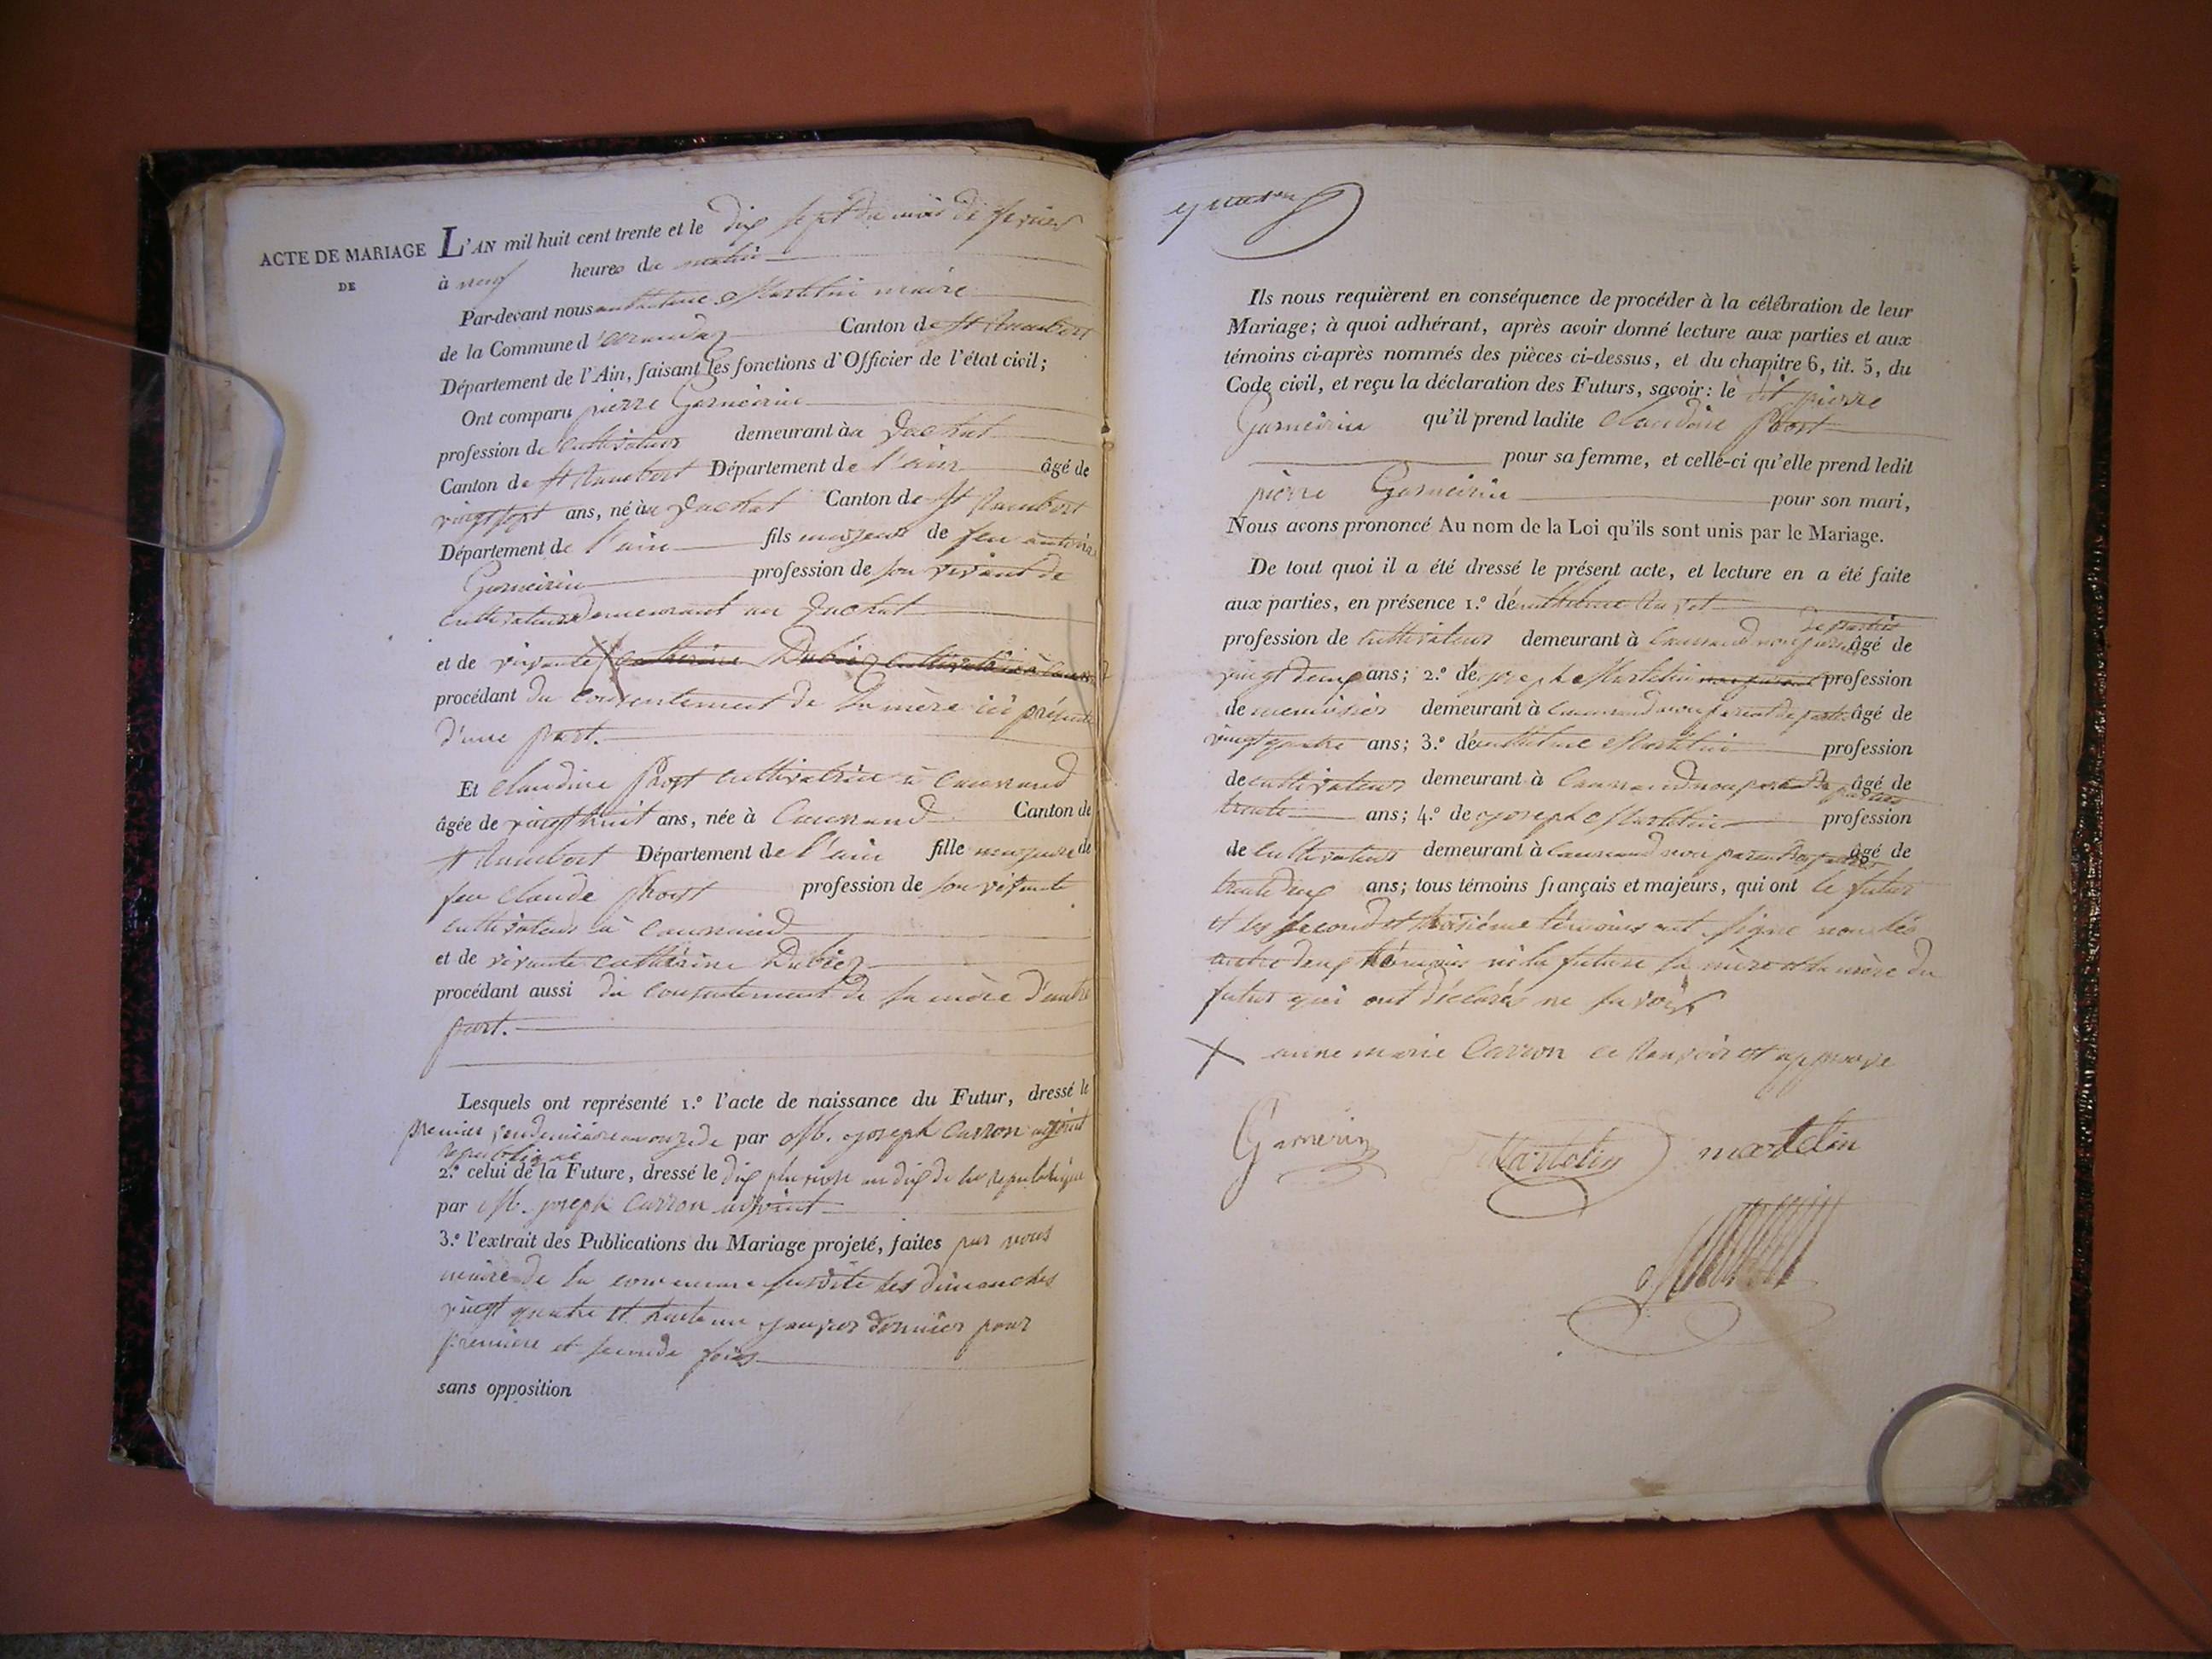 ACTE DE MARIAGE
DE
L'AN mil huit cent trente et le dix sept du mois de fevrier
à neuf heures du matin
Par-devant nous anthelme Martelin maire
de la Commune d'arandaz Canton de St Rambert
Département de l'Ain, faisant les fonctions d'Officier de l'état civil;
Ont comparu pierre Garneirin
profession de cultivateur demeurant au
Canton de St Rambert Département de l'ain âgé de
vingt sept ans, né au Canton de St Rambert
Département de l'ain fils majeur de feu antoine
Garneirin profession de son vivant de
cultivateur demeurant au
et de vivante catherine Dubiez cultivatrice à
procédant du consentement de sa mère ici présente
d'une part.
Et claudine Prost cultivatrice à
âgée de vingt huit ans, née à Canton de
St Rambert Département de l'ain fille majeure de
feu claude Prost profession de son vivante
cultivateur à
et de vivante catherine Dubiez
procédant aussi du consentement de sa mère d'autre
part.
Lesquels ont représenté 1.º l'acte de naissance du Futur, dressé le
premier vendemiaire an onze de par M. joseph Carron adjoint
republique
2.º celui de la Future, dressé le dix pluviose an dix de la republique
par M. joseph Carron adjoint
3.º l'extrait des Publications du Mariage projeté, faites par nous
maire de la commune susdite les dimanches
vingt quatre et trente un janvier dernier pour
premiere et seconde fois
sans opposition
Ils nous requièrent en conséquence de procéder à la célébration de leur
Mariage; à quoi adhérant, après avoir donné lecture aux parties et aux
témoins ci-après nommés des pièces ci-dessus, et du chapitre 6, tit. 5, du
Code civil, et reçu la déclaration des Futurs, savoir: le dit pierre
Garneirin qu'il prend ladite claudine Prost
pour sa femme, et celle-ci qu'elle prend ledit
pierre Garneirin pour son mari,
Nous avons prononcé Au nom de la Loi qu'ils sont unis par le Mariage.
De tout quoi il a été dressé le présent acte, et lecture en a été faite
aux parties, en présence 1.º d'anthelme
des parties
profession de cultivateur demeurant à non parent âgé de
vingt deux ans; 2.º de joseph Martelin non parent profession
de menuisier demeurant à non parent des parties âgé de
vingt quatre ans; 3.º d'anthelme Martelin profession
de cultivateur demeurant à non parent des parties âgé de
trente ans; 4.º de joseph Martelin profession
de cultivateur demeurant à non parent des parties âgé de
trente deux ans; tous témoins français et majeurs, qui ont le futur
et les second et troisième témoins ont signé non les
autre deux témoins ni la future sa mère et la mère du
futur qui ont déclarés ne savoir
X anne marie Carron ce renvoir est approuvé
Garnerin
Martelin
martelin